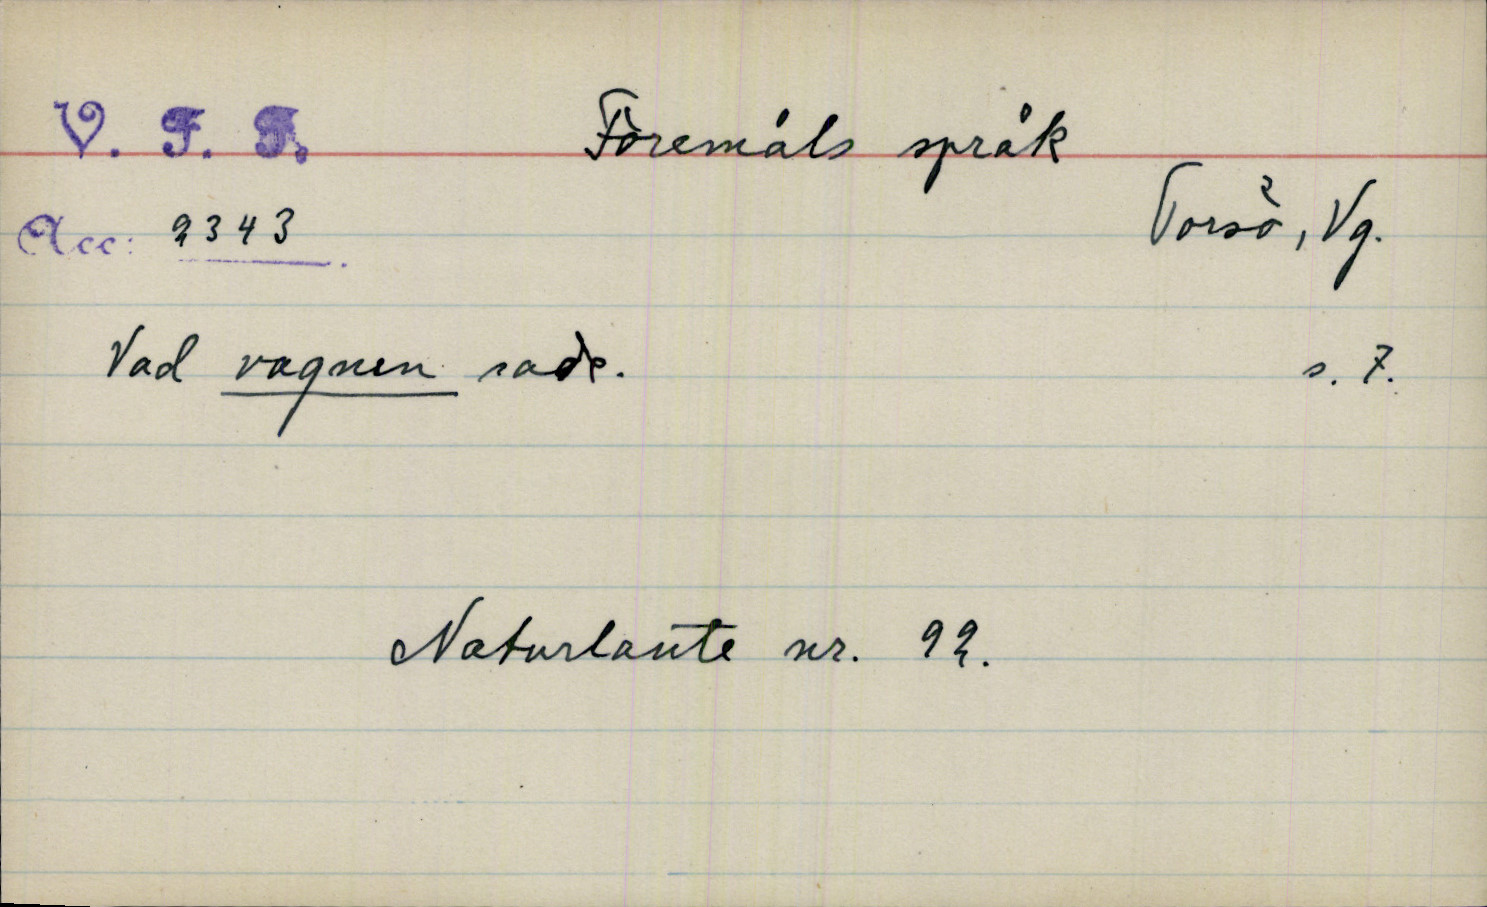 V. F. F. Föremåls språk
Acc: 2343 Torsö, Vg.
Vad vagnen sade. s. 7.
Naturlaute nr. 92.